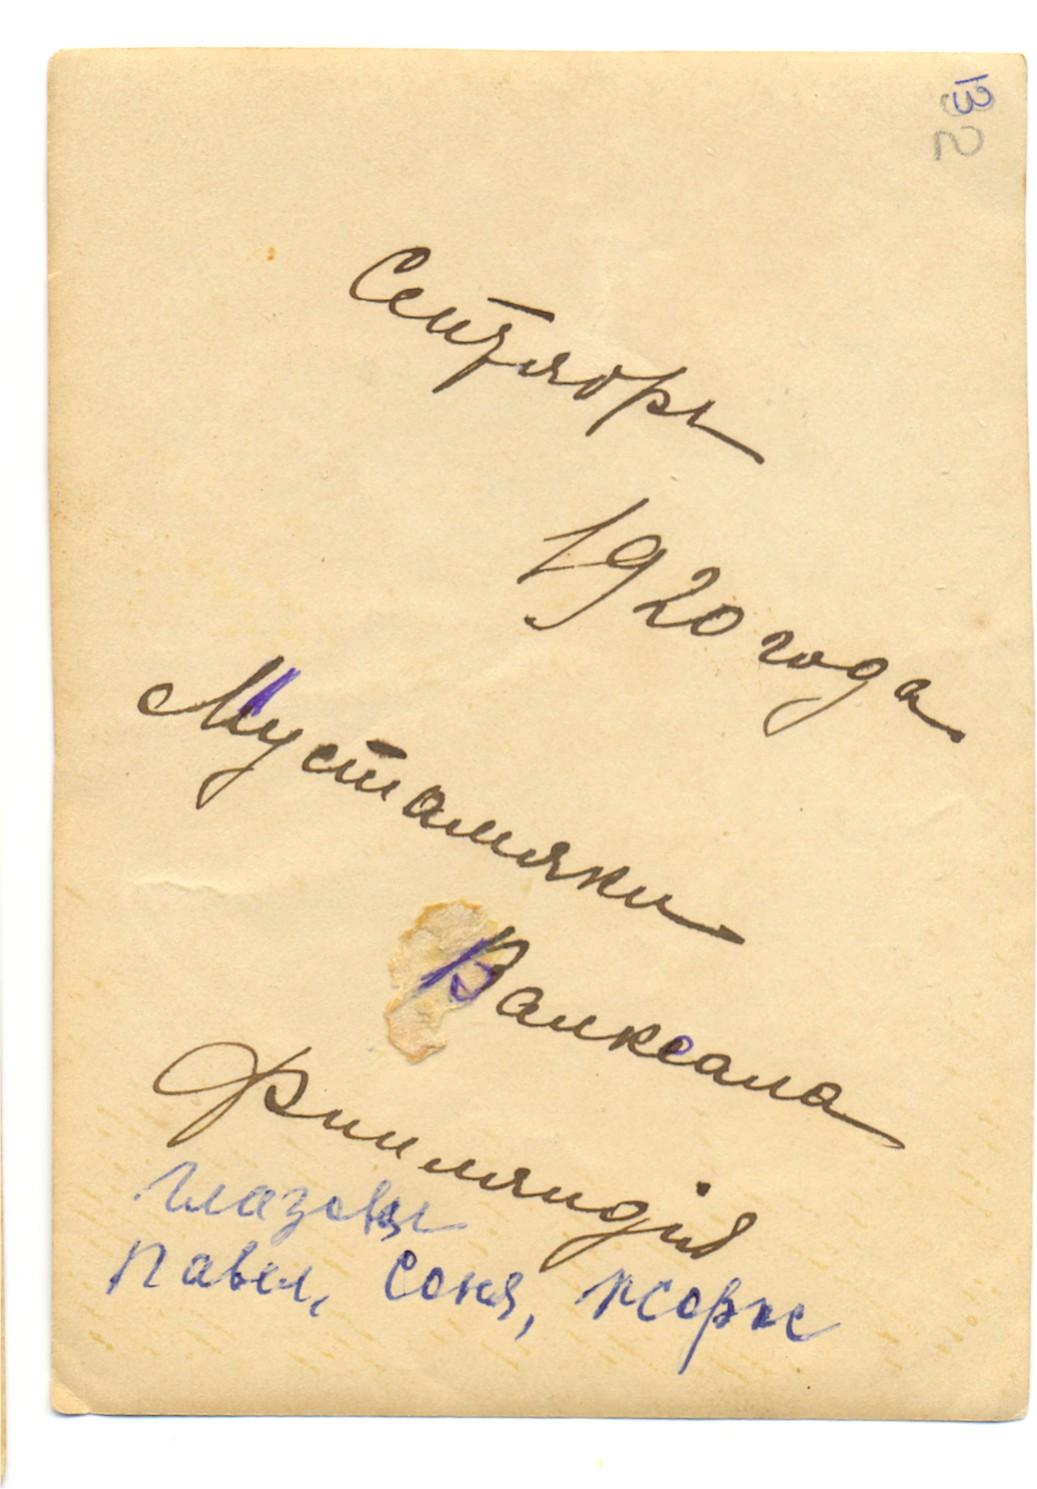 Сентябрь
1920 года
Мустамяки
Ваиксала
Финляндiя
Глазовы
Павел, Соня, Жорж